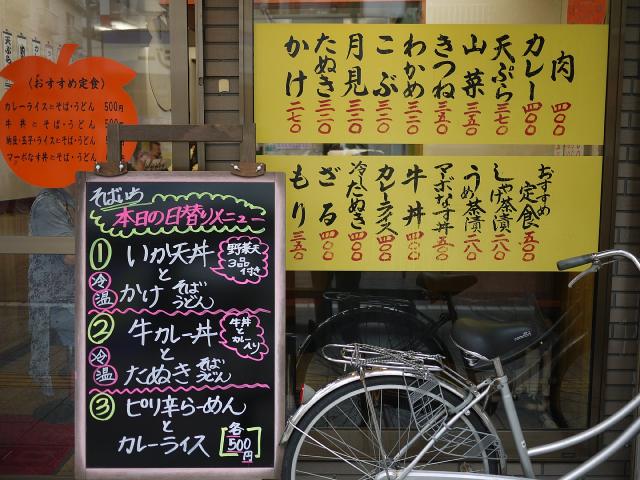 (おすすめ定食)
カレーライスにそば・うどん 500円
牛丼にそば・うどん 500
納豆・玉子・ライスにそば・うどん
マーボなす丼にそば・うどん
肉 四〇〇
カレー 四〇〇
天ぷら 三七〇
山菜 三五〇
きつね 三五〇
わかめ 三二〇
こぶ 三二〇
月見 三二〇
たぬき 三二〇
かけ 二七〇
おすすめ定食 五〇〇
しゃけ茶漬 二八〇
うめ茶漬 二八〇
マーボなす丼 五〇〇
牛丼 四〇〇
カレーライス 四〇〇
冷したぬき 四〇〇
ざる 四〇〇
もり 三五〇
そばいち
本日の日替りメニュー
① いか天丼
と
冷温 かけ そばうどん
野菜天3品付き
② 牛カレー丼
と
冷温 たぬき そばうどん
牛丼とカレー入り
③ ピリ辛らーめん
と
カレーライス
各500円